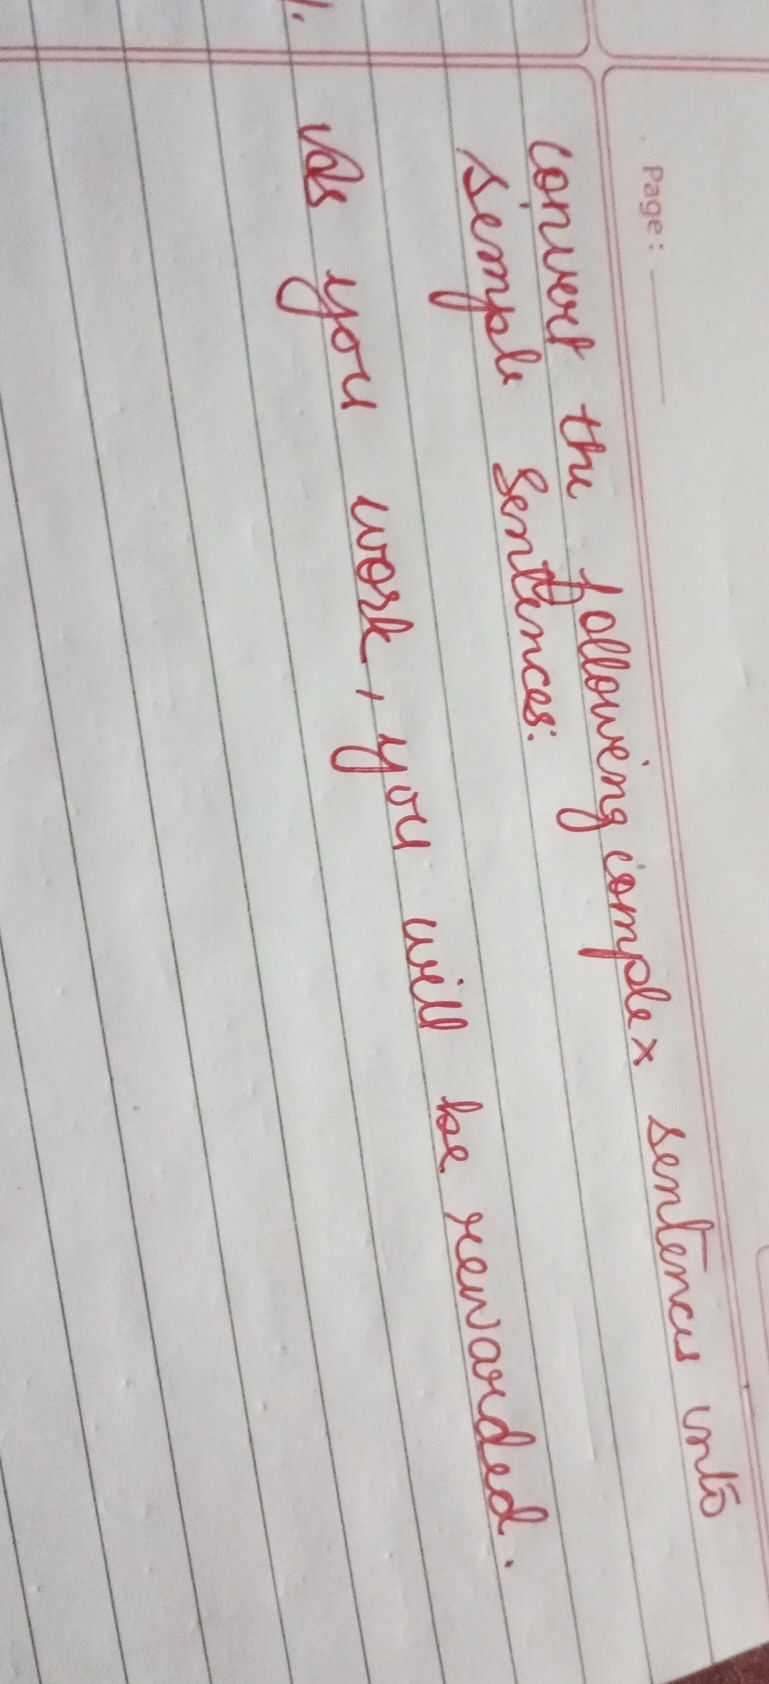 Page:
Convert the following complex sentences into
simple sentences:
1. As you work, you will be rewarded.